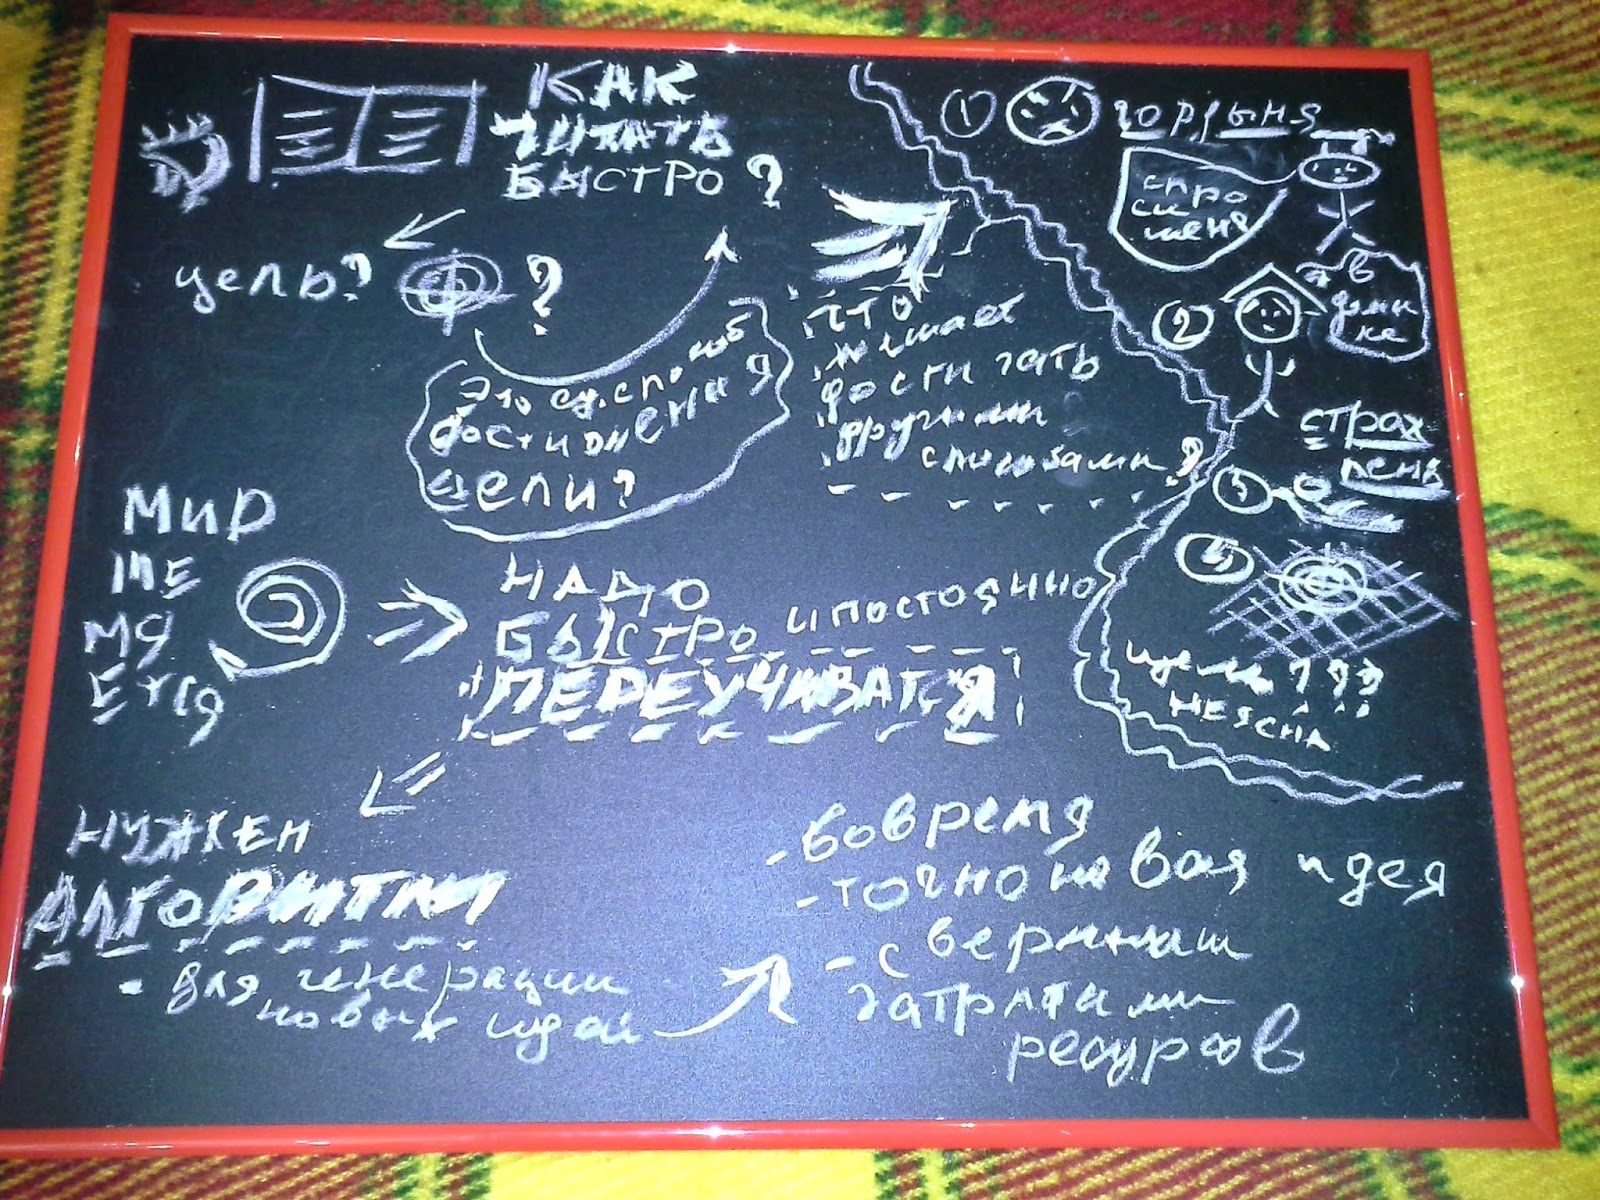 КАК
ЧИТАТЬ
БЫСТРО ?
цель? ?
Это ед. способ
достижения
цели?
что
мешает
достигать
другими
способами ?
1 гордыня
спро
си
меня
2 я в
доми
ке
страх
3 лень
4
цель ? ? ?
НЕЯСНА
Мир
МЕ
НЯ
Ется
НАДО
БЫСТРО и постоянно
ПЕРЕУЧИВАТСЯ
НУЖЕН
АЛГОРИТМ
- для генерации
новых идей
- вовремя
- точно новая идея
- с верными
затратами
ресурсов